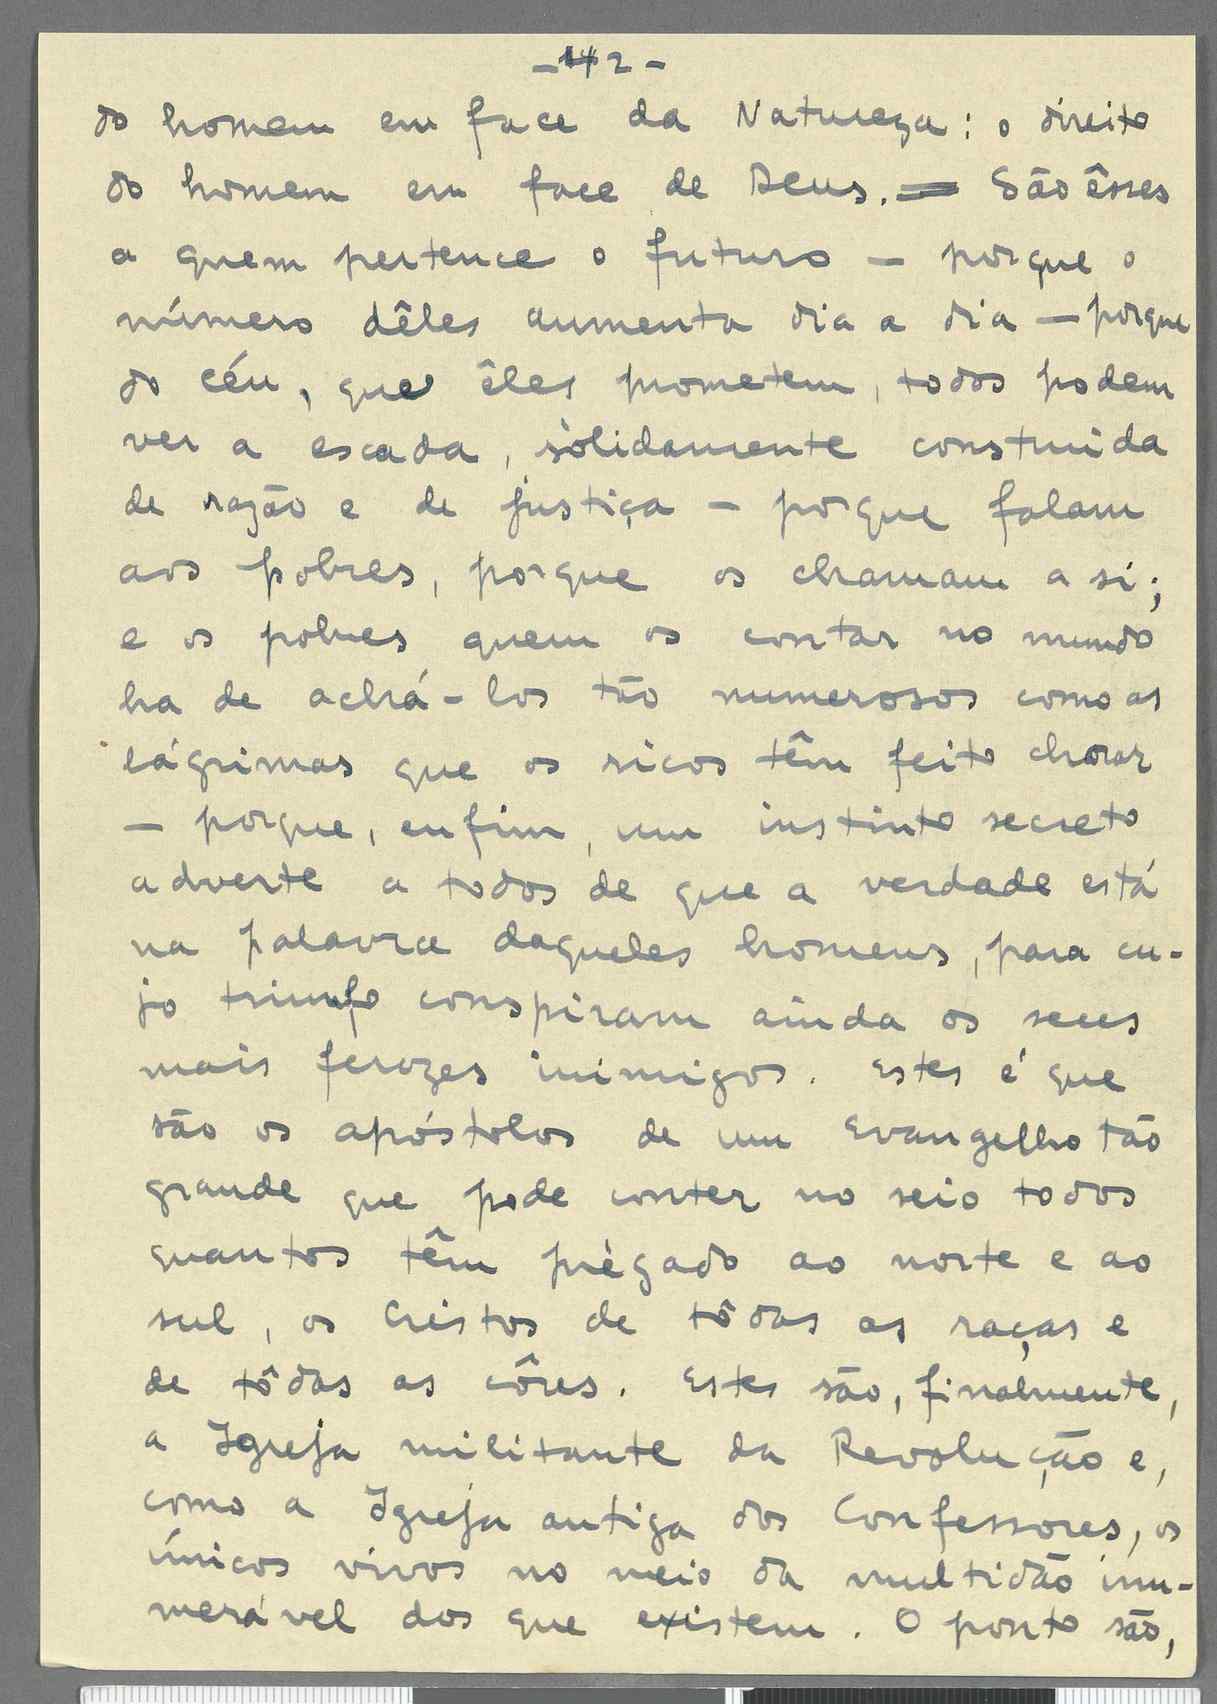 - 2 -
do homem em face da Natureza: o direito
do homem em face de Deus. — São êsses
a quem pertence o futuro — porque o
número dêles aumenta dia a dia — porque
do céu, que êles prometem, todos podem
ver a escada, sòlidamente construida
de razão e de justiça — porque falam
aos pobres, porque os chamam a si;
e os pobres quem os contar no mundo
ha de achá-los tão numerosos como as
lágrimas que os ricos têm feito chorar
— porque, enfim, um instinto secreto
adverte a todos de que a verdade está
na palavra daqueles homens, para cu-
jo triunfo conspiram ainda os seus
mais ferozes inimigos. Estes é que
são os apóstolos de um Evangelho tão
grande que pode conter no seio todos
quantos têm prègado ao norte e ao
sul, os Cristos de tôdas as raças e
de tôdas as côres. Estes são, finalmente,
a Igreja militante da Revolução e,
como a Igreja antiga dos Confessores, os
únicos vivos no meio da multidão inu-
merável dos que existem. O ponto são,